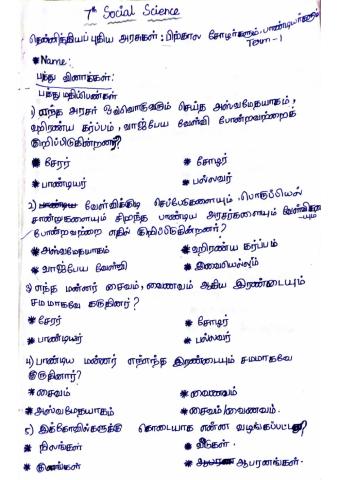 7th Social Science
தென்னிந்தியப் புதிய அரசுகள் : பிற்கால சோழர்களும், பாண்டியர்களும்
Term - 1
* Name:
பத்து வினாக்கள்:
பத்து மதிப்பெண்கள்
1) எந்த அரசர் ஒவ்வொருவரும் செய்த அஸ்வமேதயாகம்,
ஹிரண்ய கர்ப்பம், வாஜ்பேய வேள்வி போன்றவற்றைக்
குறிப்பிடுகின்றனர்?
* சேரர் * சோழர்
* பாண்டியர் * பல்லவர்
2) வேள்விக்குடி செப்பேடுகளையும், பொருப்பெல்
சான்றுகளையும் சிறந்த பாண்டிய அரசர்களையும் வேள்விகளையும்
போன்றவற்றை எதில் குறிப்பிடுகின்றனர்?
* அஸ்வமேதயாகம் * ஹிரண்ய கர்ப்பம்
* வாஜ்பேய வேள்வி * இவையெல்லாம்
3) எந்த மன்னர் சைவம், வைணவம் ஆகிய இரண்டையும்
சமமாகவே கருதினர்?
* சேரர் * சோழர்
* பாண்டியர் * பல்லவர்
4) பாண்டிய மன்னர் எந்எந்த இரண்டையும் சமமாகவே
கருதினார்?
* சைவம் * வைணவம்
* அஸ்வமேதயாகம் * சைவம்/வைணவம்.
5) இக்கோவில்களுக்கு கொடையாக என்ன வழங்கப்பட்டது?
* நிலங்கள் * வீடுகள்.
* ஆபரணங்கள்.